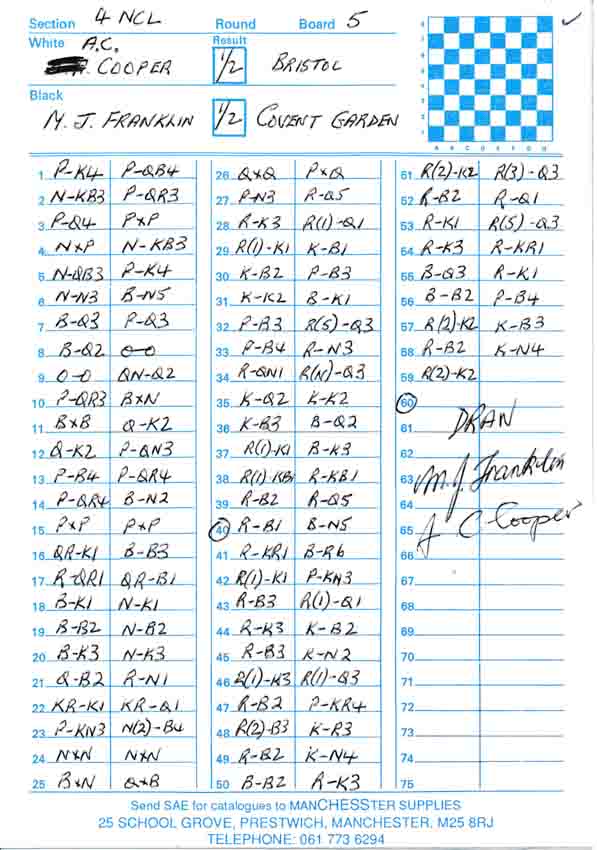 Section 4 NCL Round Board 5
White A.C. COOPER Result 1/2 BRISTOL
Black
M. J. FRANKLIN 1/2 COVENT GARDEN
1 P-K4 P-QB4
2 N-KB3 P-QR3
3 P-Q4 P×P
4 N×P N-KB3
5 N-QB3 P-K4
6 N-N3 B-N5
7 B-Q3 P-Q3
8 B-Q2 O-O
9 O-O QN-Q2
10 P-QR3 B×N
11 B×B Q-K2
12 Q-K2 P-QN3
13 P-B4 P-QR4
14 P-QR4 B-N2
15 P×P P×P
16 QR-K1 B-B3
17 R-QR1 QR-B1
18 B-K1 N-K1
19 B-B2 N-B2
20 B-K3 N-K3
21 Q-B2 R-N1
22 KR-K1 KR-Q1
23 P-KN3 N(2)-B4
24 N×N N×N
25 B×N Q×B
26 Q×Q P×Q
27 P-N3 R-Q5
28 R-K3 R(1)-Q1
29 R(1)-K1 K-B1
30 K-B2 P-B3
31 K-K2 B-K1
32 P-B3 R(5)-Q3
33 P-B4 R-N3
34 R-QN1 R(N)-Q3
35 K-Q2 K-K2
36 K-B3 B-Q2
37 R(1)-K1 B-K3
38 R(1)-KB1 R-KB1
39 R-B2 R-Q5
40 R-B1 B-N5
41 R-KR1 B-R6
42 R(1)-K1 P-KN3
43 R-B3 R(1)-Q1
44 R-K3 K-B2
45 R-B3 K-N2
46 R(1)-K3 R(1)-Q3
47 R-B2 P-KR4
48 R(2)-B3 K-R3
49 R-B2 K-N4
50 B-B2 R-K3
51 R(2)-K2 R(3)-Q3
52 R-B2 R-Q1
53 R-K1 R(5)-Q3
54 R-K3 R-KR1
55 B-Q3 R-K1
56 B-B2 P-B4
57 R(2)-K2 K-B3
58 R-B2 K-N4
59 R(2)-K2
60
61 DRAN
62
63 M. J. Franklin
64
65 A C Cooper
66
67
68
69
70
71
72
73
74
75
Send SAE for catalogues to MANCHESSTER SUPPLIES
25 SCHOOL GROVE, PRESTWICH, MANCHESTER, M25 8RJ
TELEPHONE: 061 773 6294